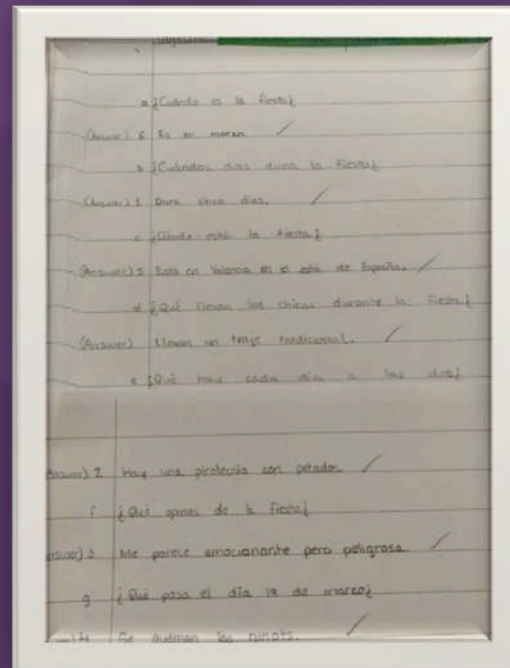 a ¿Cuándo es la fiesta¿
(Answer) 6 Es en marzo
b ¿Cuándos días dura la fiesta¿
(Answer) 1 Dura cinco días.
c ¿Dónde está la fiesta¿
(Answer) 5 Está en Valencia en el este de España.
d ¿Qué llevan las chicas durante la fiesta¿
(Answer) Llevan un traje tradicional.
e ¿Qué hay cada día a las dos¿
Answer) 7 Hay una picotecnia con petados
f ¿Qué opinas de la fiesta¿
nswer) 3 Me parece emocionante pero peligrosa
g ¿Qué pasa el día 19 de marzo¿
4 Se queman los ninots.